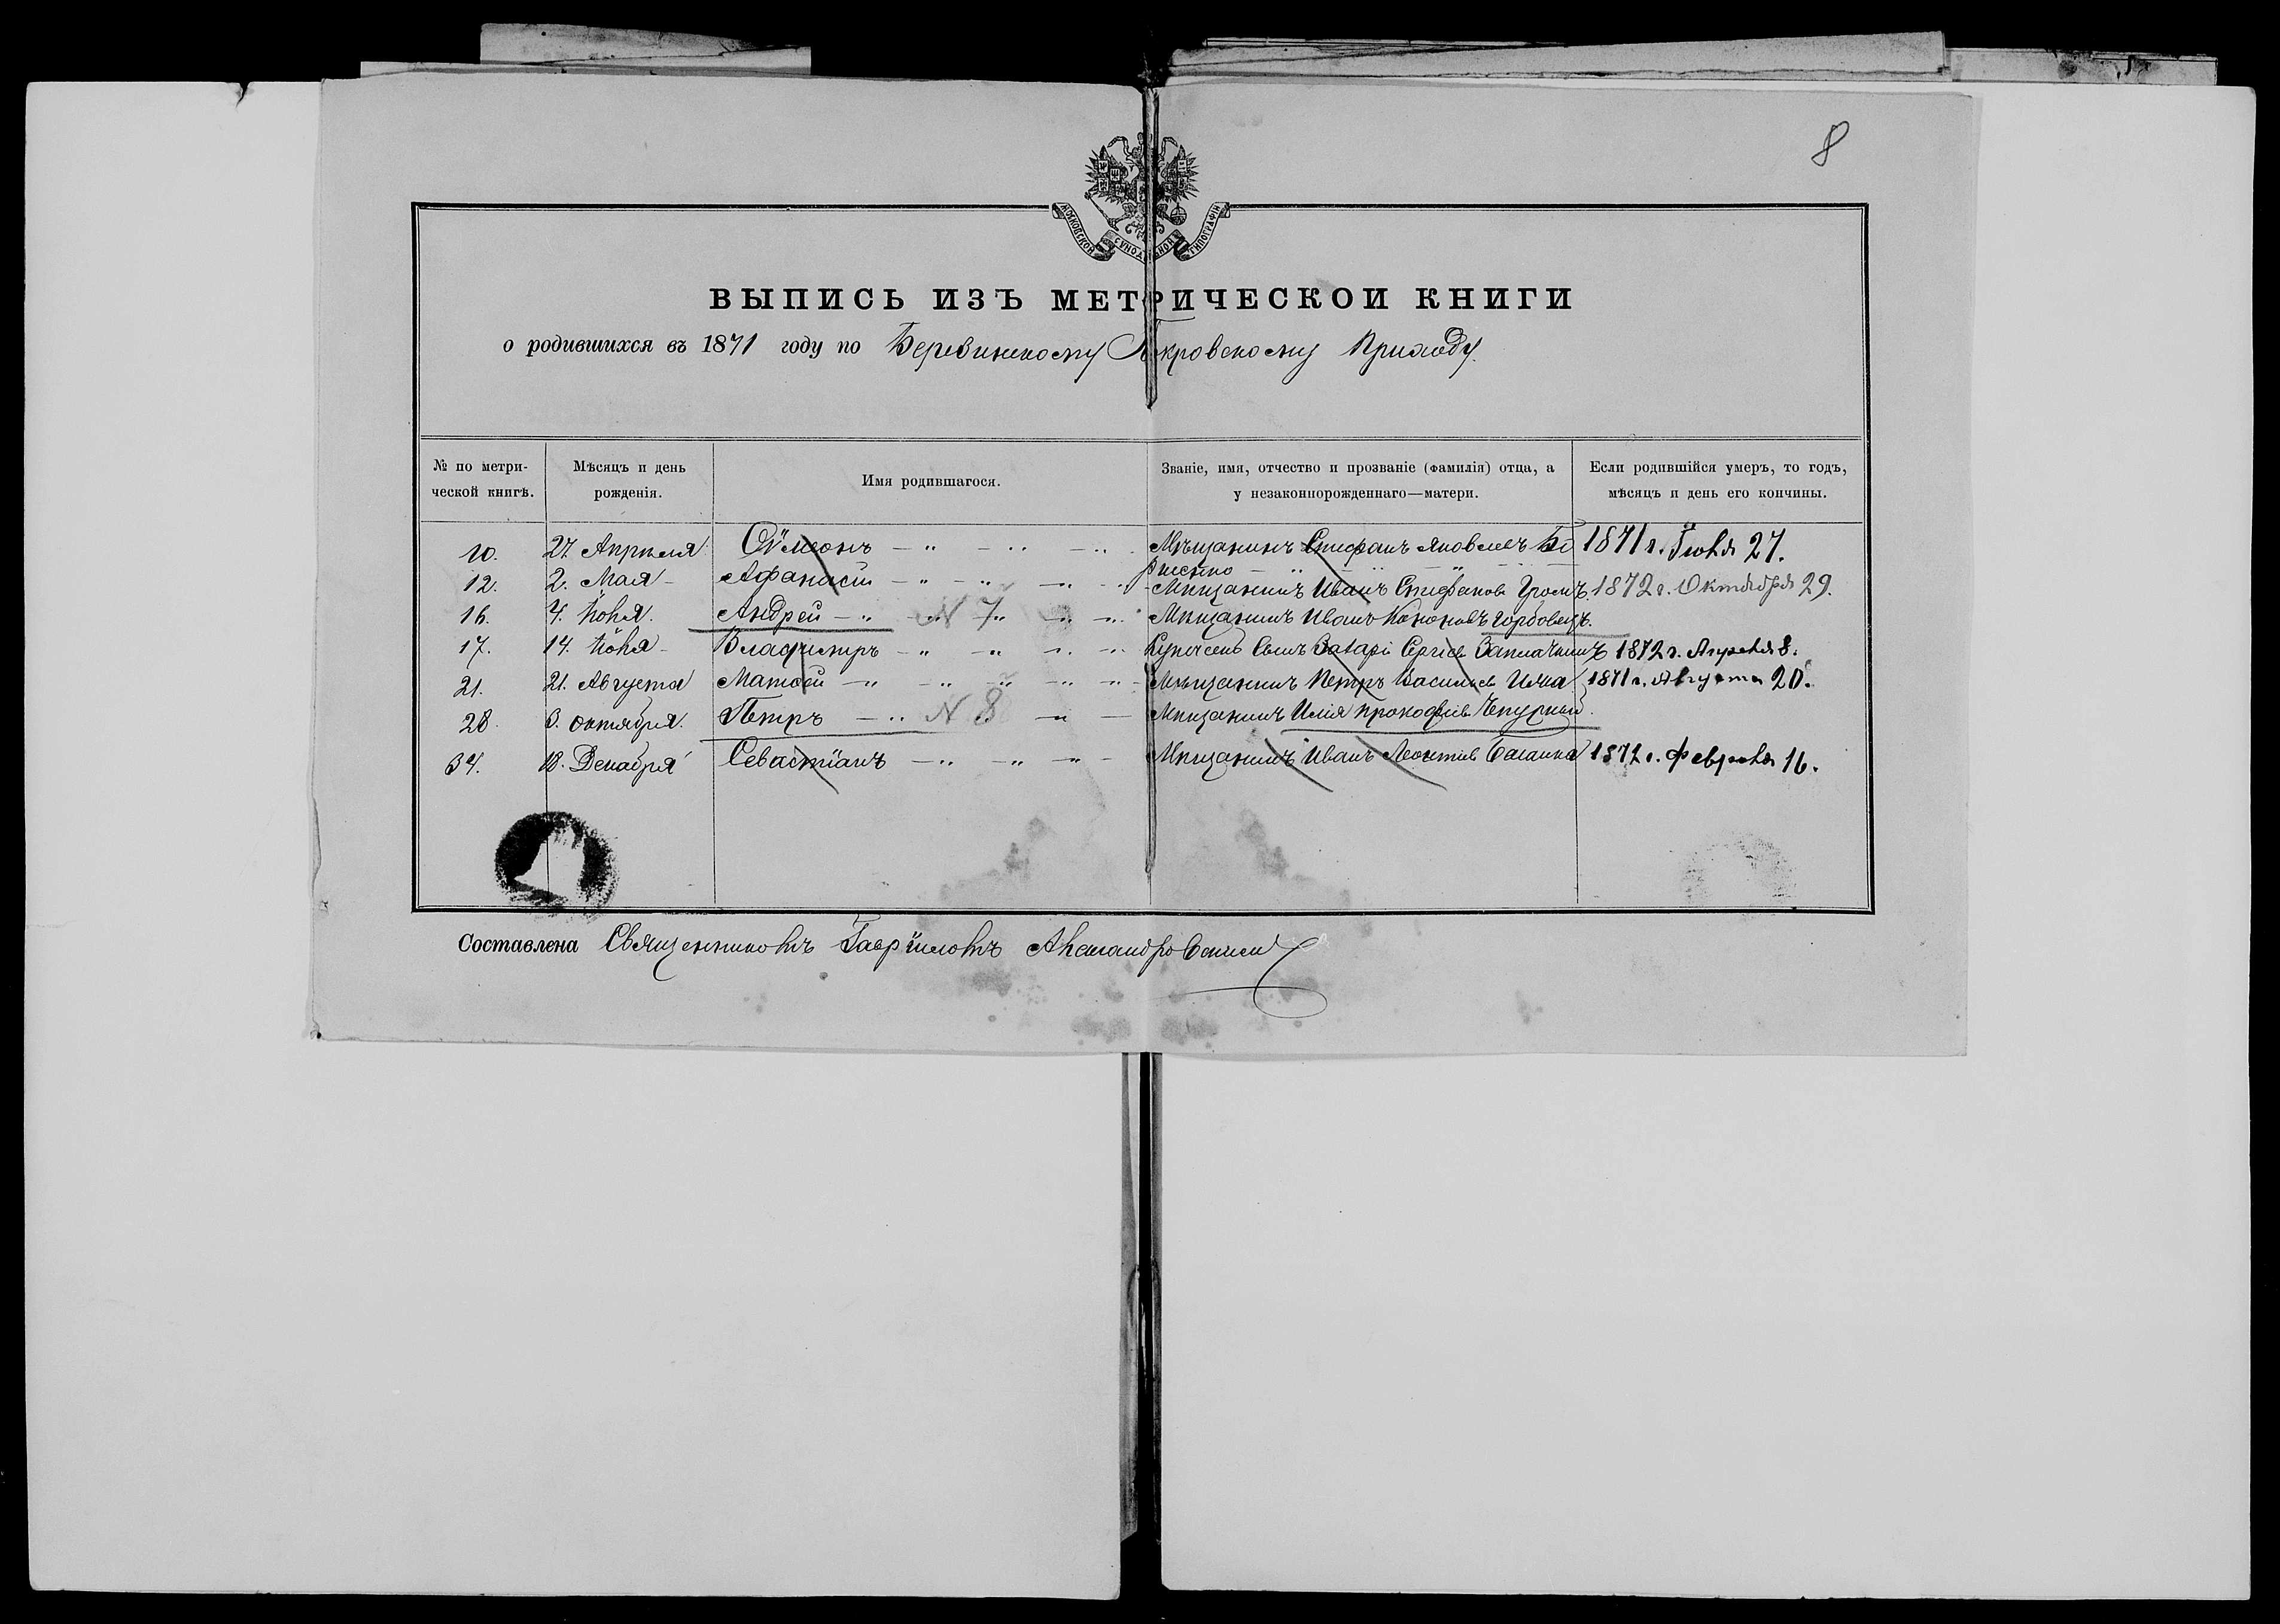 8
МОСКОВСКОЙ СѴНОДАЛЬНОЙ ТИПОГРАФІИ
ВЫПИСЬ ИЗЪ МЕТРИЧЕСКОИ КНИГИ
о родившихся въ 1871 году по Березинскому Покровскому Приходу.
№ по метри-
ческой книгѣ.
Мѣсяцъ и день
рожденія.
Имя родившагося.
Званіе, имя, отчество и прозваніе (фамилія) отца, а
у незаконнорожденнаго—матери.
Если родившійся умеръ, то годъ,
мѣсяцъ и день его кончины.
10. 27. Апрѣля Сѵмеонъ Мѣщанинъ Стефанъ Яковлевъ 1871 г. Іюля 27.
12. 2. Мая Афанасій Мѣщанинъ Иванъ Стефановъ Громъ. 1872 г. Октября 29.
16. 4. Іюня. Андрей N 7 Мѣщанинъ Иванъ Кононовъ Горбовецъ.
17. 14. Іюня Владимiръ Купеческ Сынъ Захарій Сергіев 1872 г. Апрѣля 8.
21. 21. Августа Матѳей Мѣщанинъ Петръ Васильев 1871 г. Августа 20.
28. 3. Октября. Петръ N 8 Мѣщанинъ Илія Прокофіев Чепурный.
34. 18. Декабря Севастіанъ Мѣщанинъ Иванъ Леонтіев 1872 г. Февраля 16.
Составлена Священникомъ Гавріиломъ Александровскимъ